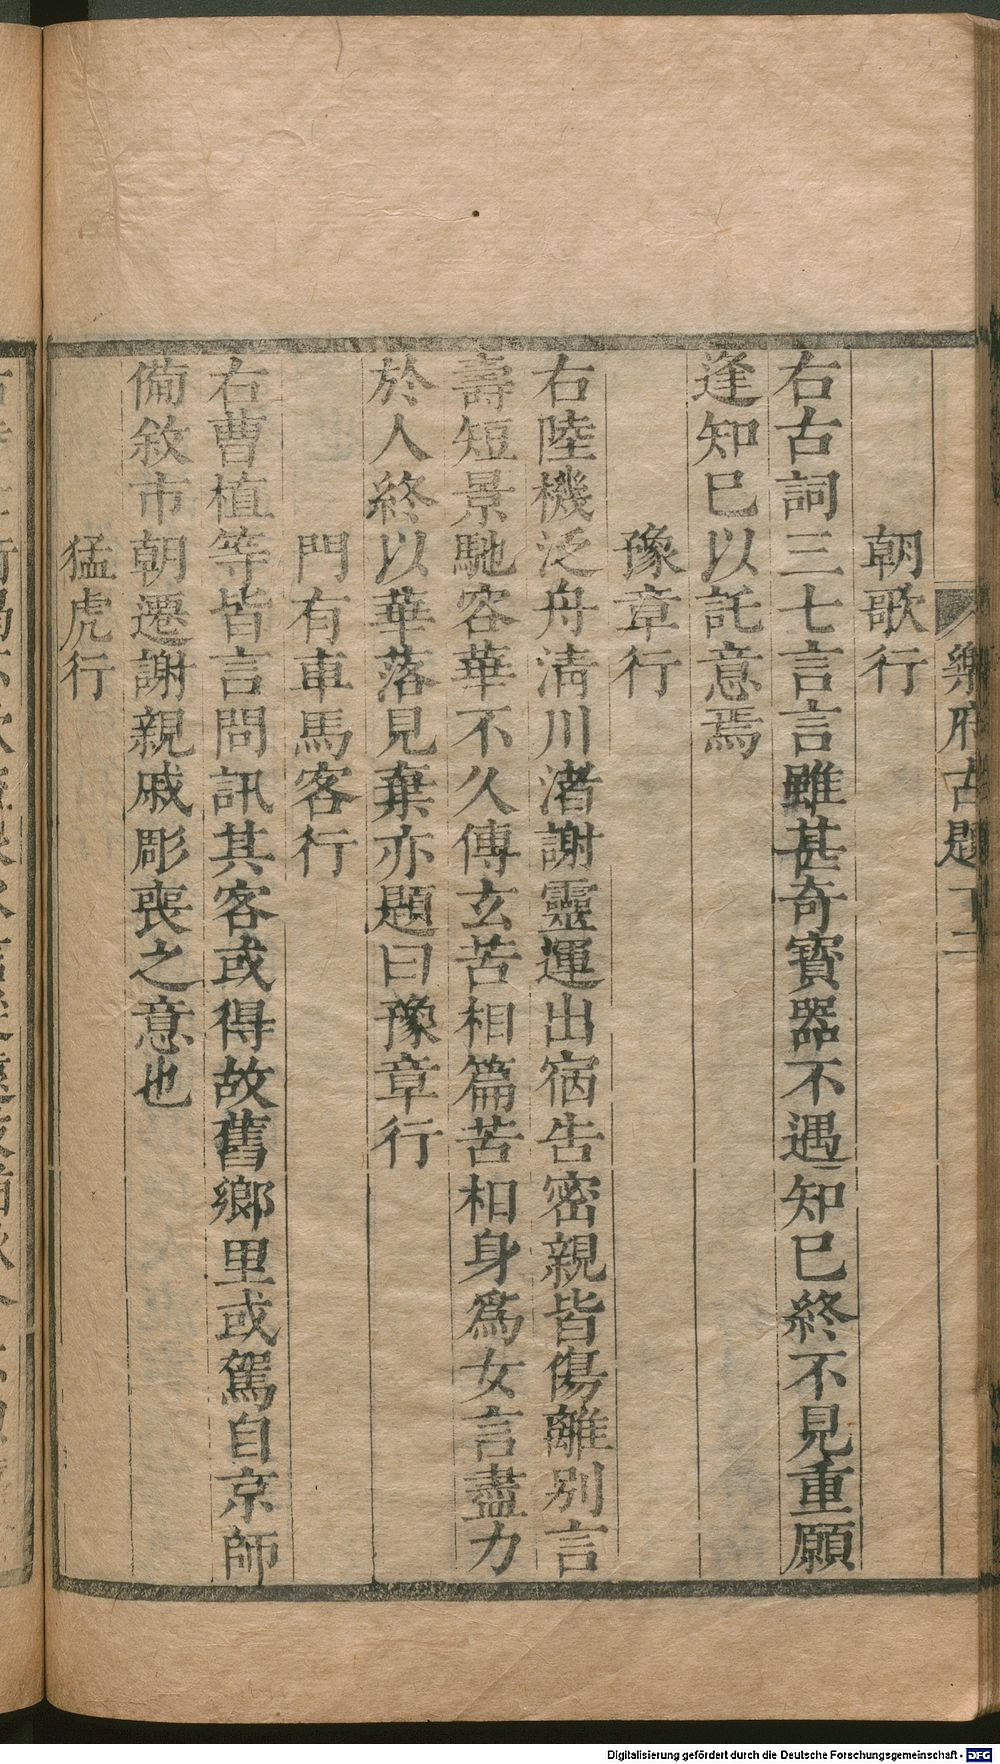 樂府古題下 二
朝歌行
右古詞三七言言雖甚奇寶器不遇知已終不見重願
逢知已以託意焉
豫章行
右陸機泛舟淸川渚謝靈運出宿告密親皆傷離别言
壽短景馳容華不久傳玄苦相篇苦相身爲女言盡力
於人終以華落見棄亦題曰豫章行
門有車馬客行
右曹植等皆言問訊其客或得故舊鄉里或駕自京師
備敘市朝遷謝親戚彫喪之意也
猛虎行
Digitalisierung gefördert durch die Deutsche Forschungsgemeinschaft - DFG